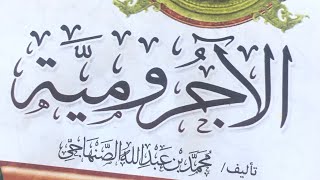 الآجُرُّومِيَّة
تأليف/ مُحَمَّدِ بْنِ عَبْدِ اللهِ الصِّنْهَاجِيِّ